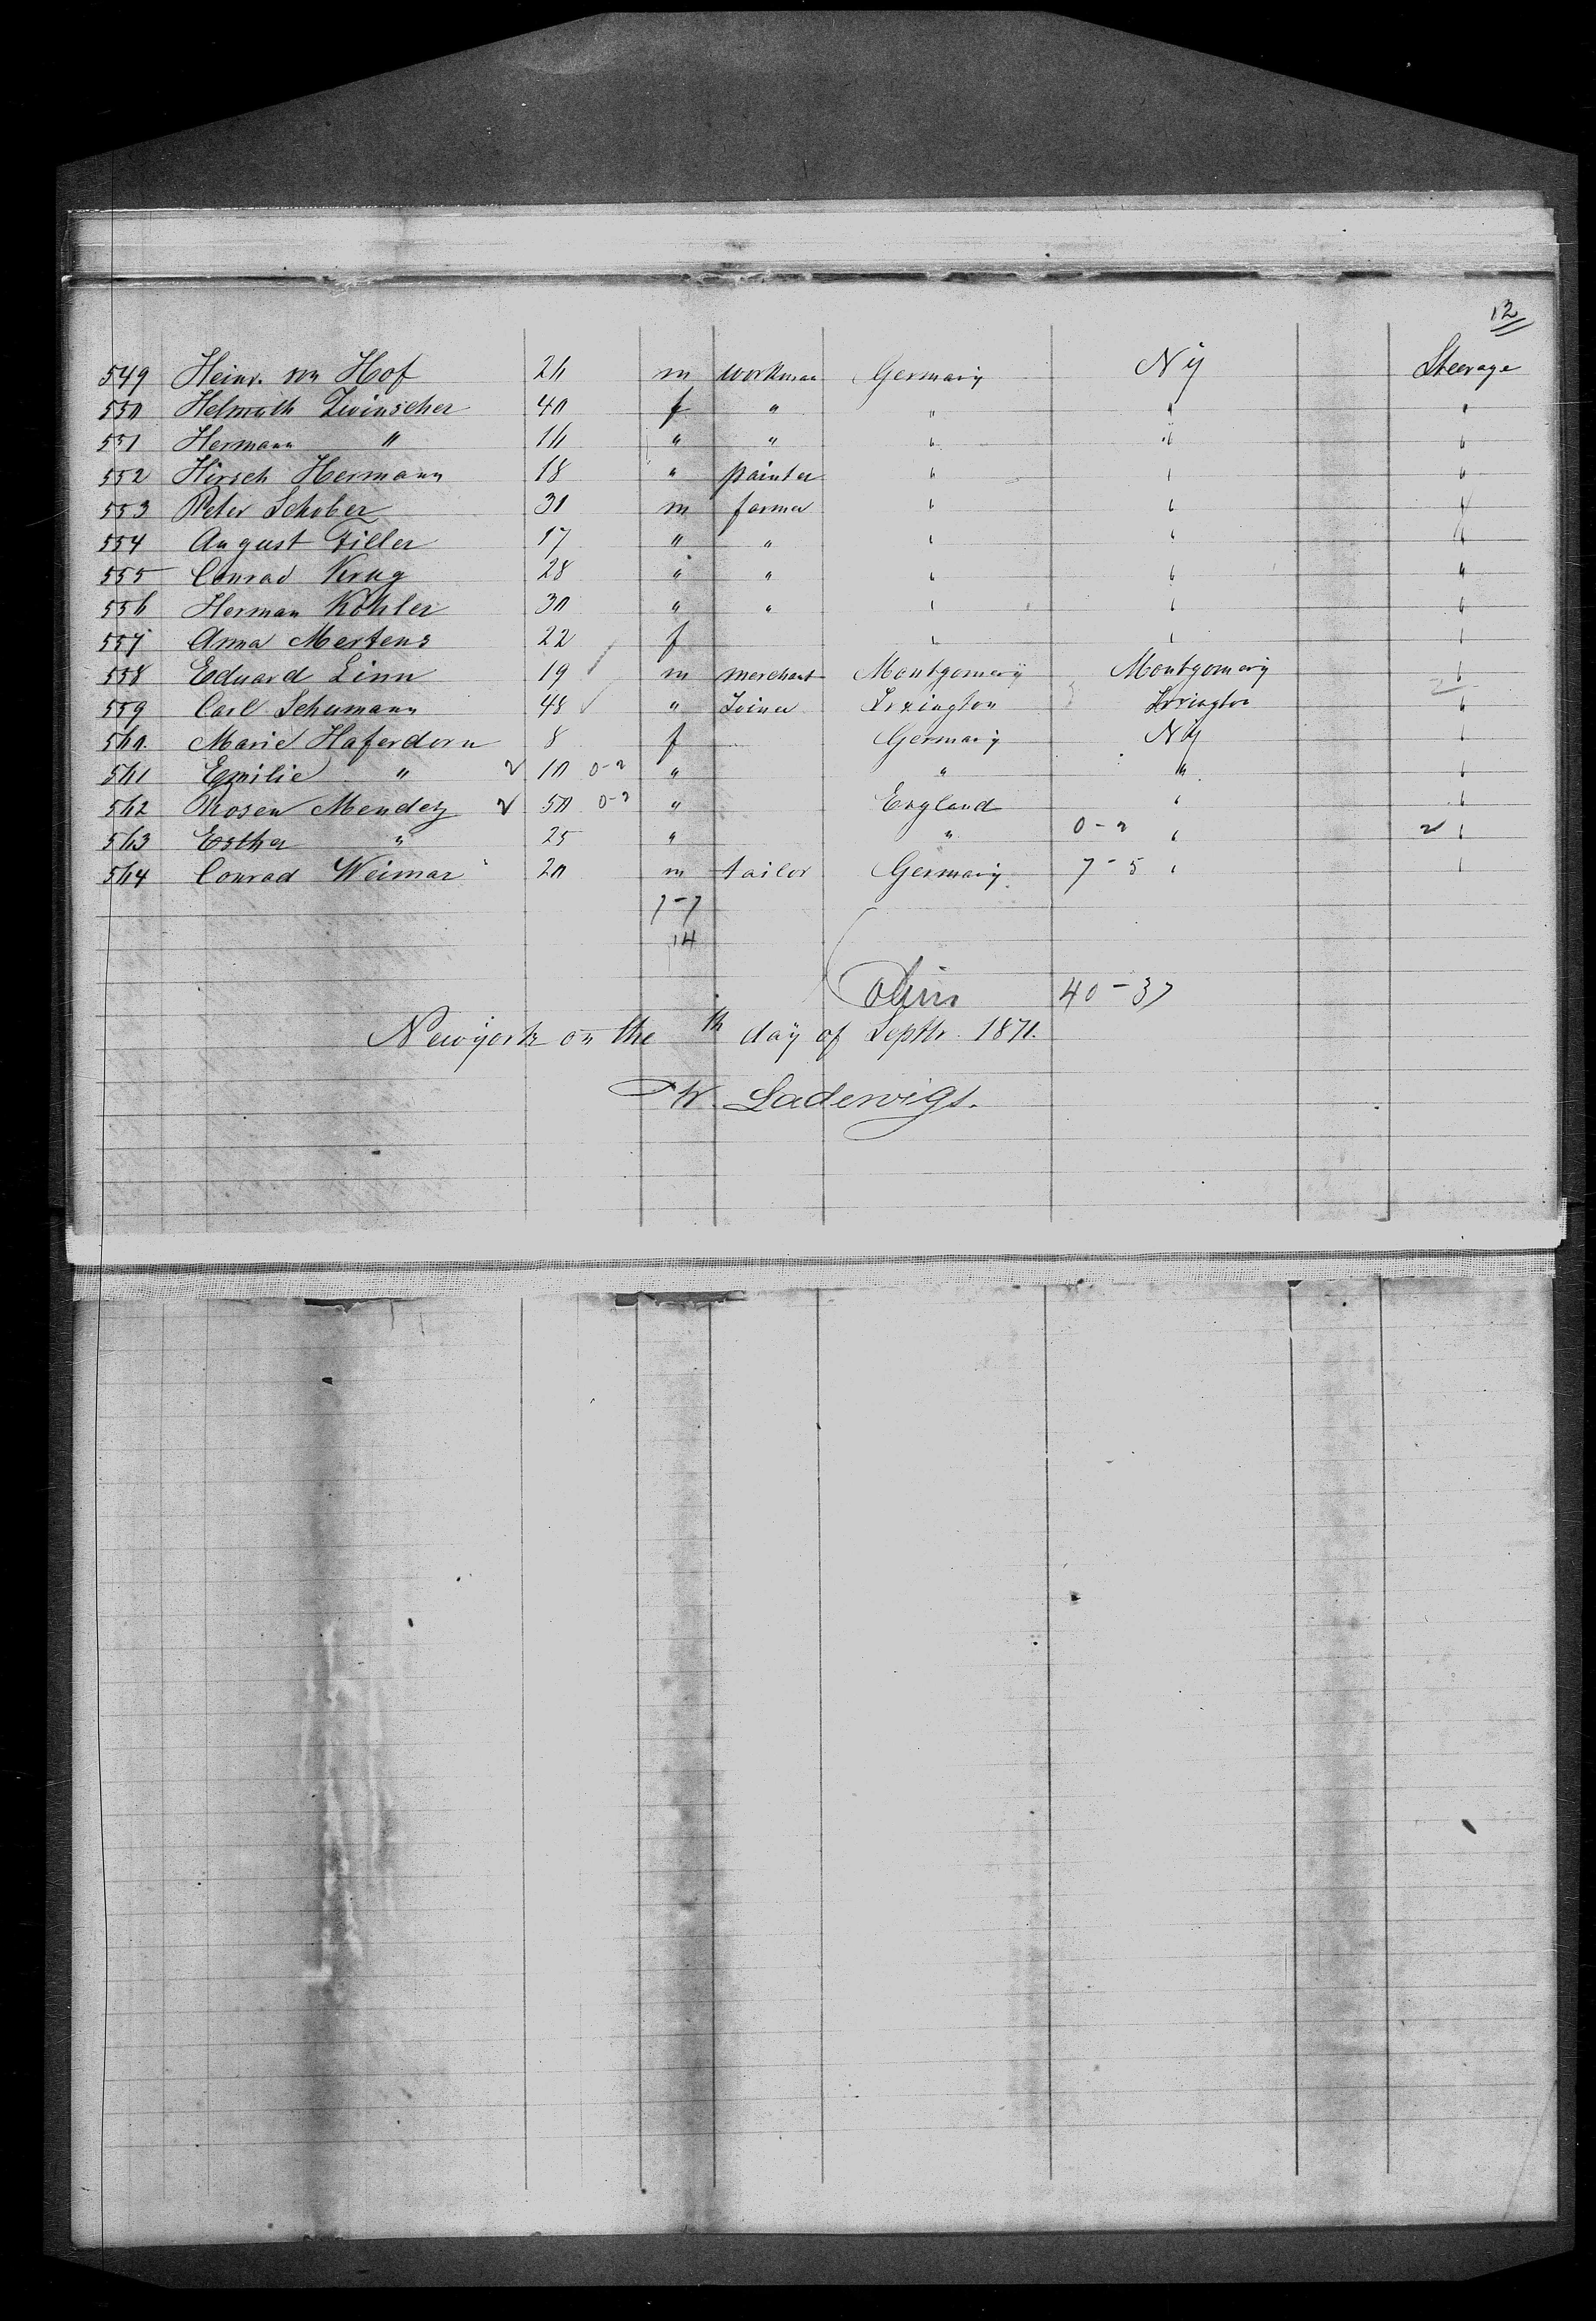 12
549 Heinr. von Hof 26 m workman Germany Ny Steerage
550 Helmuth Zwinscher 40 f " " " "
551 Hermann " 16 " " " " "
552 Hirsch Hermann 18 " painter " " "
553 Peter Schober 30 m farmer " " "
554 August Filler 17 " " " " "
555 Conrad Krug 28 " " " " "
556 Herman Köhler 30 " " " " "
557 Anna Mertens 22 f " " "
558 Eduard Linn 19 m merchant Montgomery Montgomery "
559 Carl Schumann 48 " Joiner Lexington Lexington "
560. Marie Haferdorn 8 f Germany Ny "
561 Emilie " 10 0-2 " " " "
562 Rosen Mendez 50 0-2 " England " "
563 Esther " 25 " " 0-2 " 2 "
564 Conrad Weimar 20 m tailor Germany 7-5 " "
7-7
14
40-37
Newyork on the th day of Septbr. 1871.
W. Ladewigs.